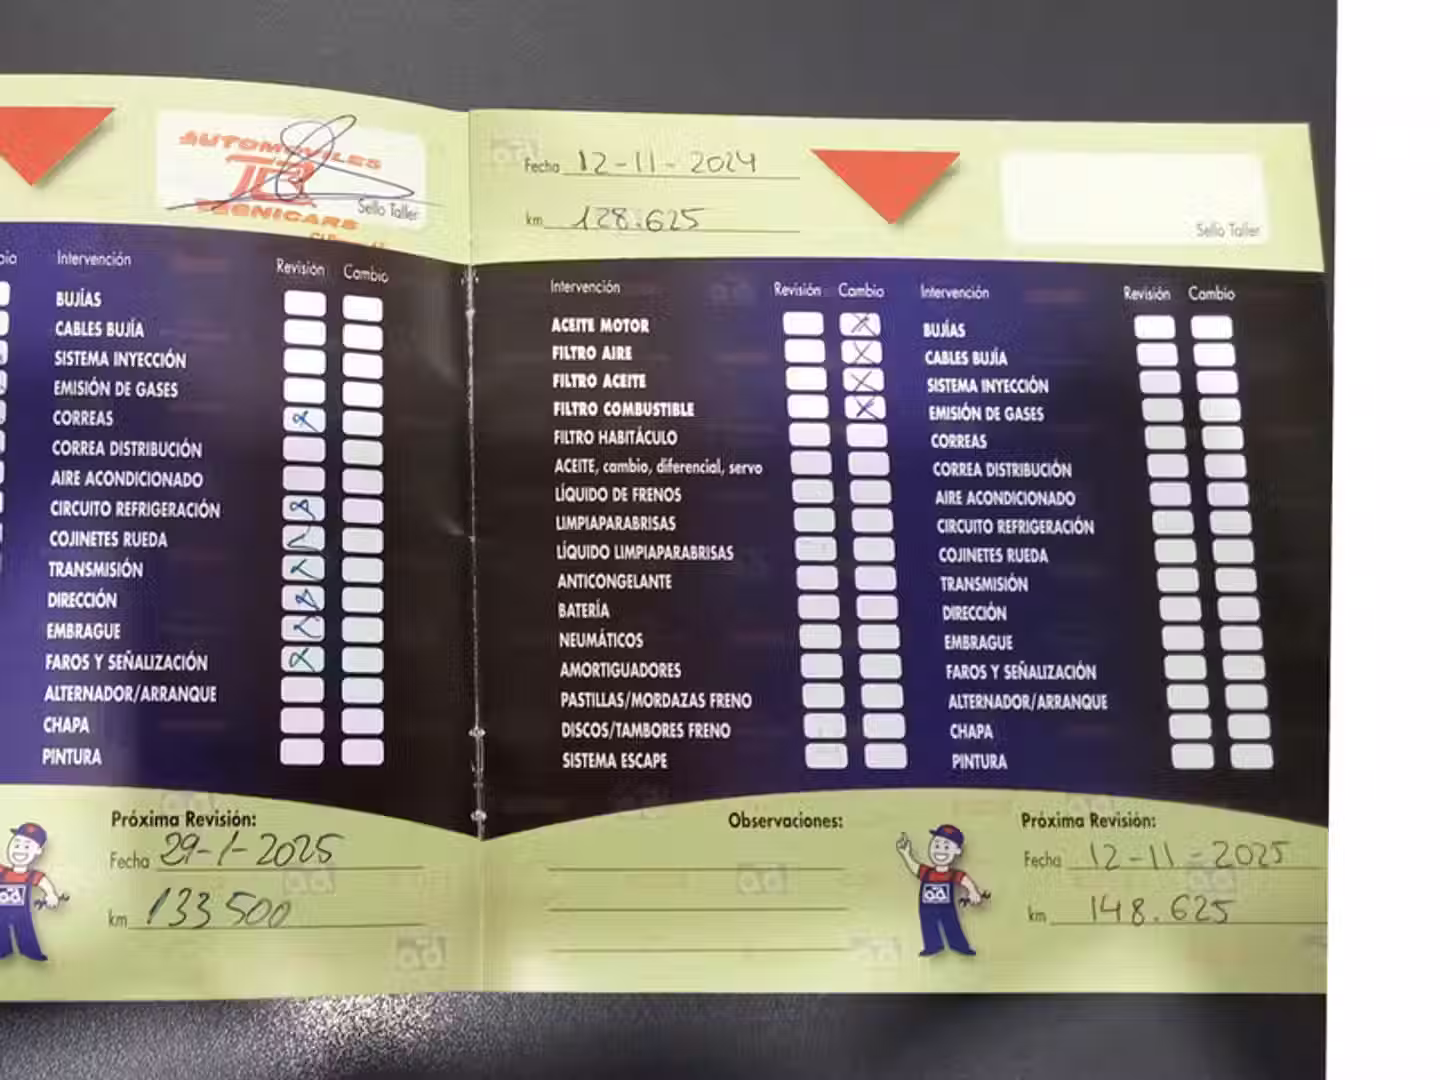 AUTOMOVILES
TR
TECNICARS
Sello Taller
Intervención Revisión Cambio
BUJÍAS
CABLES BUJÍA
SISTEMA INYECCIÓN
EMISIÓN DE GASES
CORREAS
CORREA DISTRIBUCIÓN
AIRE ACONDICIONADO
CIRCUITO REFRIGERACIÓN
COJINETES RUEDA
TRANSMISIÓN
DIRECCIÓN
EMBRAGUE
FAROS Y SEÑALIZACIÓN
ALTERNADOR/ARRANQUE
CHAPA
PINTURA
Próxima Revisión:
Fecha 29-1-2025
km 133 500
Fecha 12-11-2024
km 128.625
Sello Taller
Intervención Revisión Cambio
ACEITE MOTOR
FILTRO AIRE
FILTRO ACEITE
FILTRO COMBUSTIBLE
FILTRO HABITÁCULO
ACEITE, cambio, diferencial, servo
LÍQUIDO DE FRENOS
LIMPIAPARABRISAS
LÍQUIDO LIMPIAPARABRISAS
ANTICONGELANTE
BATERÍA
NEUMÁTICOS
AMORTIGUADORES
PASTILLAS/MORDAZAS FRENO
DISCOS/TAMBORES FRENO
SISTEMA ESCAPE
Intervención Revisión Cambio
BUJÍAS
CABLES BUJÍA
SISTEMA INYECCIÓN
EMISIÓN DE GASES
CORREAS
CORREA DISTRIBUCIÓN
AIRE ACONDICIONADO
CIRCUITO REFRIGERACIÓN
COJINETES RUEDA
TRANSMISIÓN
DIRECCIÓN
EMBRAGUE
FAROS Y SEÑALIZACIÓN
ALTERNADOR/ARRANQUE
CHAPA
PINTURA
Observaciones:
Próxima Revisión:
Fecha 12-11-2025
km 148.625